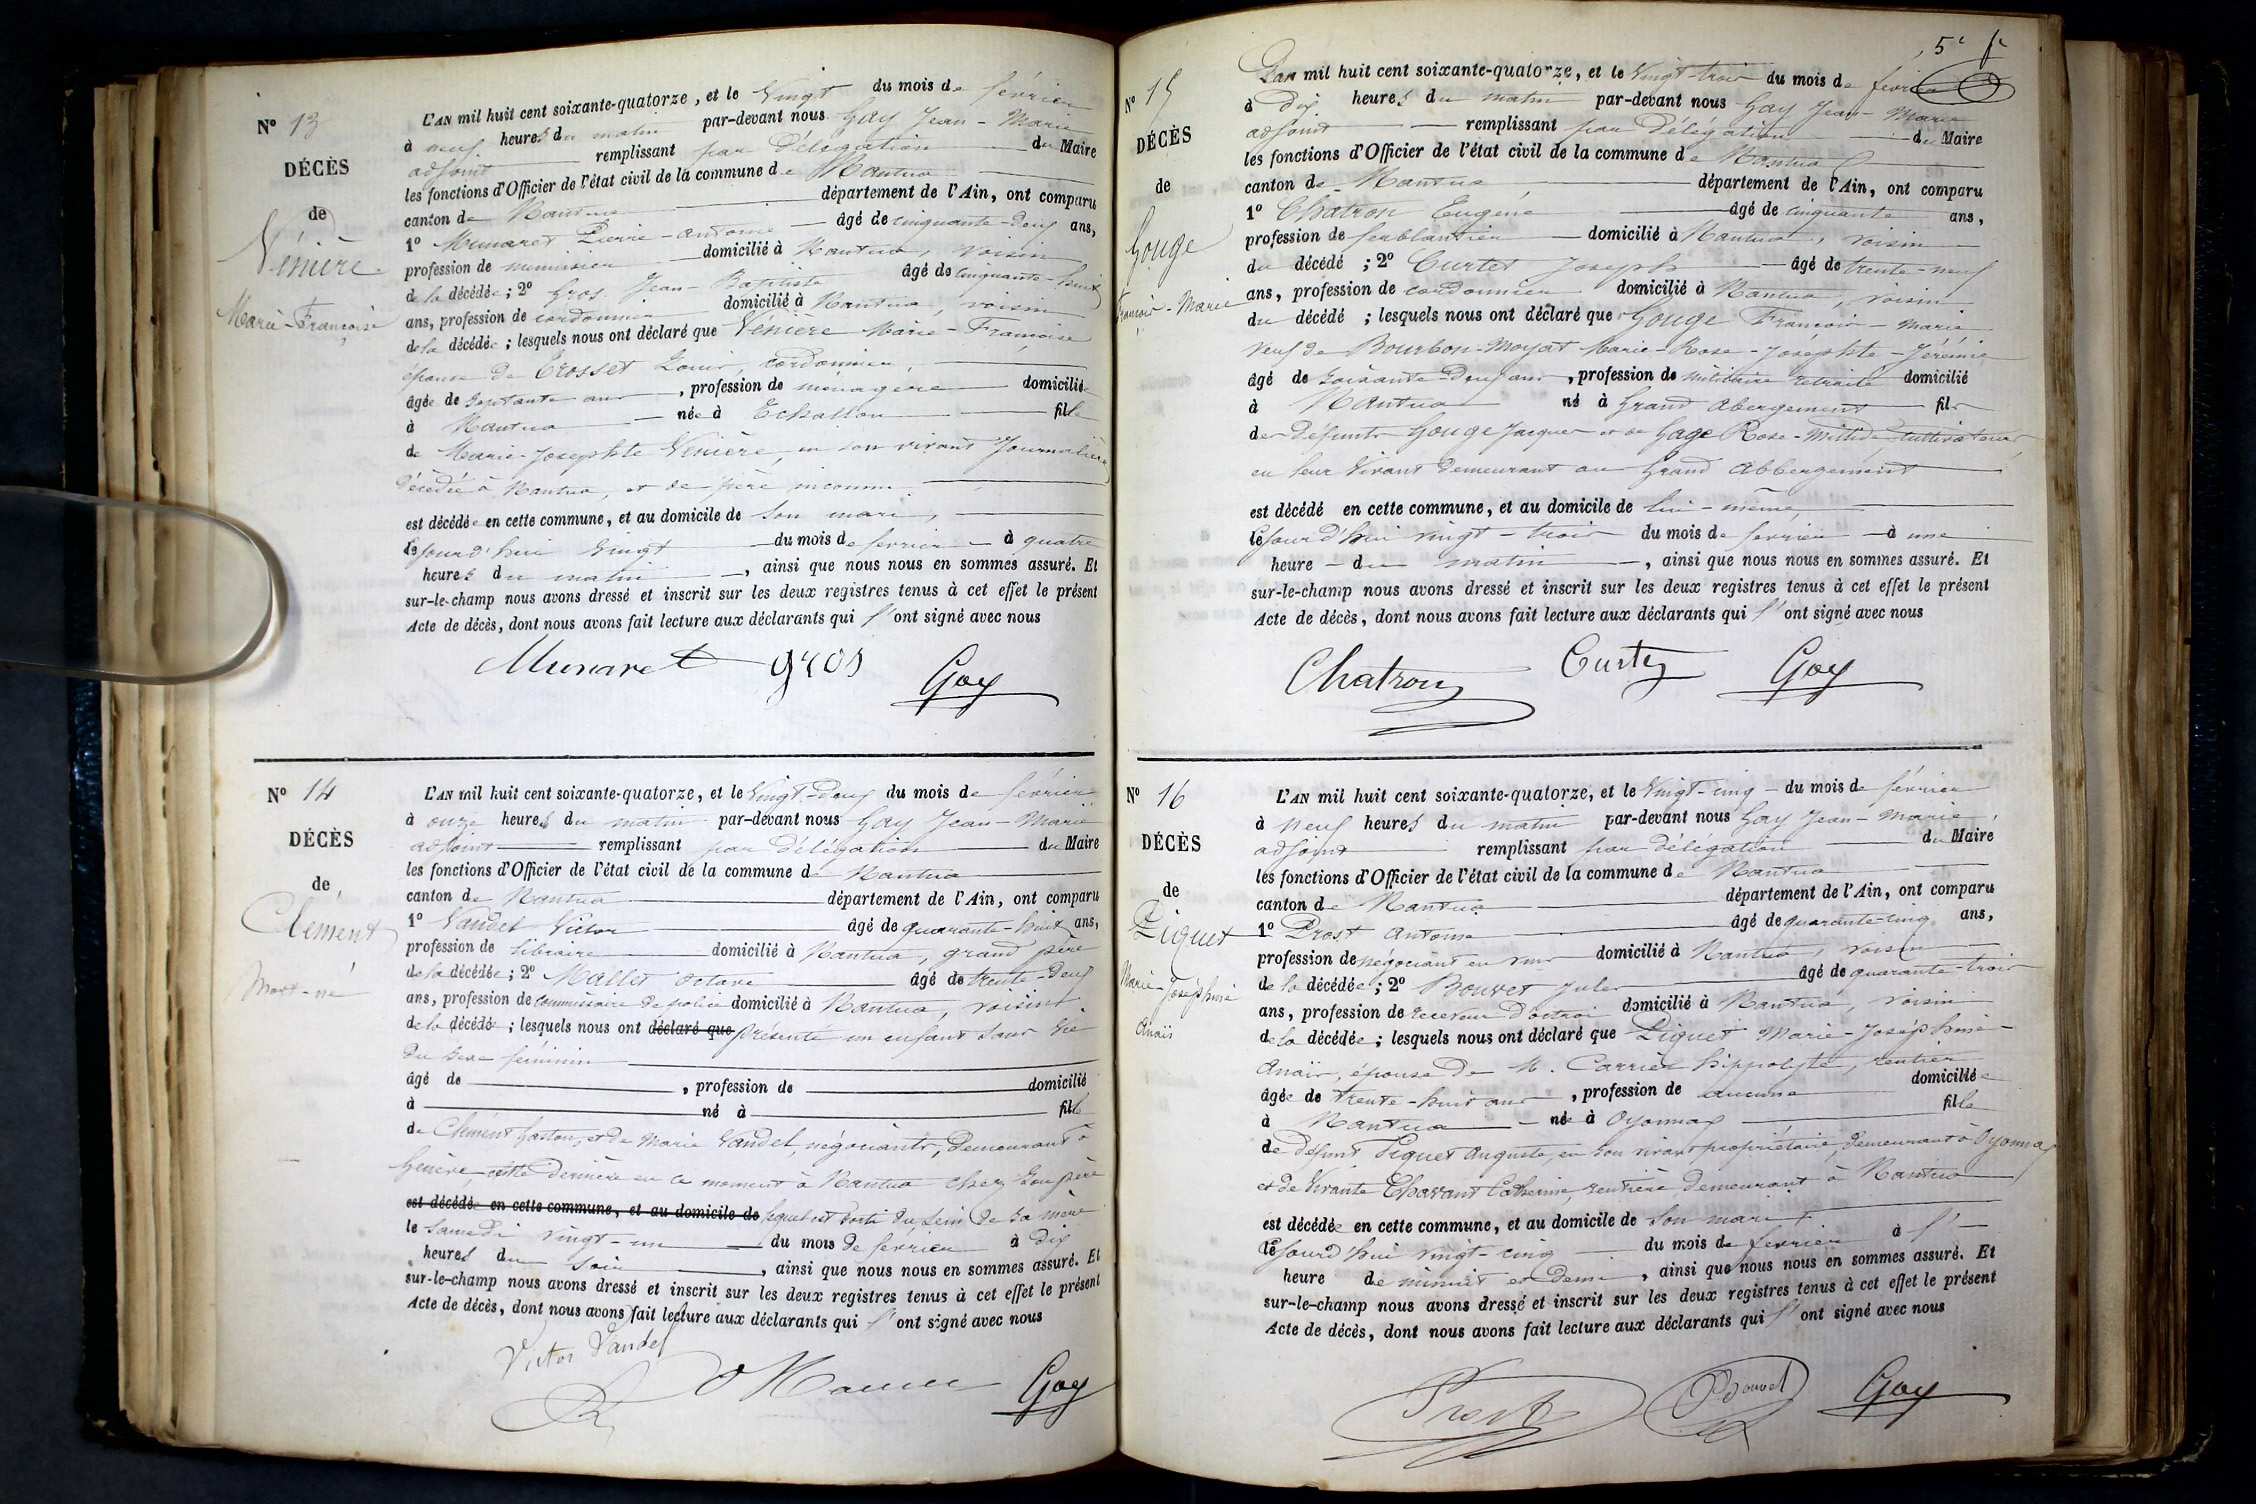 N° 13
DÉCÈS
de
Vénière
Marie-Françoise
L'AN mil huit cent soixante-quatorze, et le Vingt du mois de février
à neuf heures du matin par-devant nous Gay Jean-Marie
adjoint remplissant par Délégation du Maire
les fonctions d'Officier de l'état civil de la commune de Nantua
canton de Nantua département de l'Ain, ont comparu
1° Munaret Pierre-Antoine âgé de cinquante-deux ans,
profession de menuisier domicilié à Nantua, voisin
de la décédée ; 2° Gros Jean-Baptiste âgé de cinquante-huit
ans, profession de cordonnier domicilié à Nantua, voisin
de la décédée ; lesquels nous ont déclaré que Vénière Marie-Françoise
épouse de Crosset Louis, cordonnier,
âgée de septante ans, profession de ménagère domiciliée
à Nantua née à Echallon fille
de Marie-Josephte Vénière, en son vivant Journalière
décédée à Nantua, et de père inconnu
est décédée en cette commune, et au domicile de son mari,
cejourd'hui vingt du mois de février à quatre
heures du matin, ainsi que nous nous en sommes assuré. Et
sur-le-champ nous avons dressé et inscrit sur les deux registres tenus à cet effet le présent
Acte de décès, dont nous avons fait lecture aux déclarants qui l'ont signé avec nous
Munaret gros Gay
N° 14
DÉCÈS
de
Clément
Mort-né
L'AN mil huit cent soixante-quatorze, et le Vingt-deux du mois de février
à onze heures du matin par-devant nous Gay Jean-Marie
adjoint remplissant par Délégation du Maire
les fonctions d'Officier de l'état civil de la commune de Nantua
canton de Nantua département de l'Ain, ont comparu
1° Vandel Victor âgé de quarante-huit ans,
profession de libraire domicilié à Nantua, grand père
de la décédée ; 2° Mallet Octave âgé de trente-deux
ans, profession de commissaire de police domicilié à Nantua, voisin
de la décédé ; lesquels nous ont déclaré que présenté un enfant sans vie
du sexe féminin
âgé de , profession de domicilié
à né à fille
de Clément Gaston, et de Marie Vandel, négociants, demeurant à
Genève, cette dernière en ce moment à Nantua chez son père
est décédée en cette commune, et au domicile de lequel est sorti du sein de sa mère
le samedi vingt-un du mois de février à dix
heures du soir, ainsi que nous nous en sommes assuré. Et
sur-le-champ nous avons dressé et inscrit sur les deux registres tenus à cet effet le présent
Acte de décès, dont nous avons fait lecture aux déclarants qui l'ont signé avec nous
Victor Vandel
Gay
5e f
N° 15
DÉCÈS
de
Gouge
François-Marie
L'an mil huit cent soixante-quatorze, et le Vingt-trois du mois de février
à dix heures du matin par-devant nous Gay Jean-Marie
adjoint remplissant par Délégation du Maire
les fonctions d'Officier de l'état civil de la commune de Nantua
canton de Nantua département de l'Ain, ont comparu
1° Chatron Eugène âgé de cinquante ans,
profession de ferblantier domicilié à Nantua, voisin
du décédé ; 2° Curtet Joseph âgé de trente-neuf
ans, profession de cordonnier domicilié à Nantua, voisin
du décédé ; lesquels nous ont déclaré que Gouge François-Marie
veuf de Bourbon-Moyat Marie-Rose-Josephte-Jérémie
âgé de soixante-deux ans, profession de militaire retraité domicilié
à Nantua né à Grand Abergement fils
des défunts Gouge Jacques et de Gage Rose- cultivateurs
en leur vivant demeurant au Grand Abbergement
est décédé en cette commune, et au domicile de lui-même,
cejourd'hui vingt-trois du mois de février à une
heure du matin, ainsi que nous nous en sommes assuré. Et
sur-le-champ nous avons dressé et inscrit sur les deux registres tenus à cet effet le présent
Acte de décès, dont nous avons fait lecture aux déclarants qui l'ont signé avec nous
Chatron Curtet Gay
N° 16
DÉCÈS
de
Piquet
Marie-Joséphine
Anaïs
L'AN mil huit cent soixante-quatorze, et le Vingt-cinq du mois de février
à neuf heures du matin par-devant nous Gay Jean-Marie,
adjoint remplissant par délégation du Maire
les fonctions d'Officier de l'état civil de la commune de Nantua
canton de Nantua département de l'Ain, ont comparu
1° Prost Antoine âgé de quarante-cinq ans,
profession de négociant en vins domicilié à Nantua, voisin
de la décédée ; 2° Bouvet Jules âgé de quarante-trois
ans, profession de receveur d'octroi domicilié à Nantua, voisin
de la décédée ; lesquels nous ont déclaré que Piquet Marie-Joséphine-
Anaïs, épouse de M. Carrier Hippolyte, rentier
âgée de trente-huit ans, profession de aucune domiciliée
à Nantua née à Oyonnax fille
de défunt Piquet Auguste, en son vivant propriétaire, demeurant à Oyonnax
et de vivante Chavant Catherine, rentière demeurant à Nantua
est décédée en cette commune, et au domicile de son mari
cejourd'hui vingt-cinq du mois de février à l'
heure de minuit et demi, ainsi que nous nous en sommes assuré. Et
sur-le-champ nous avons dressé et inscrit sur les deux registres tenus à cet effet le présent
Acte de décès, dont nous avons fait lecture aux déclarants qui l'ont signé avec nous
Prost Bouvet Gay